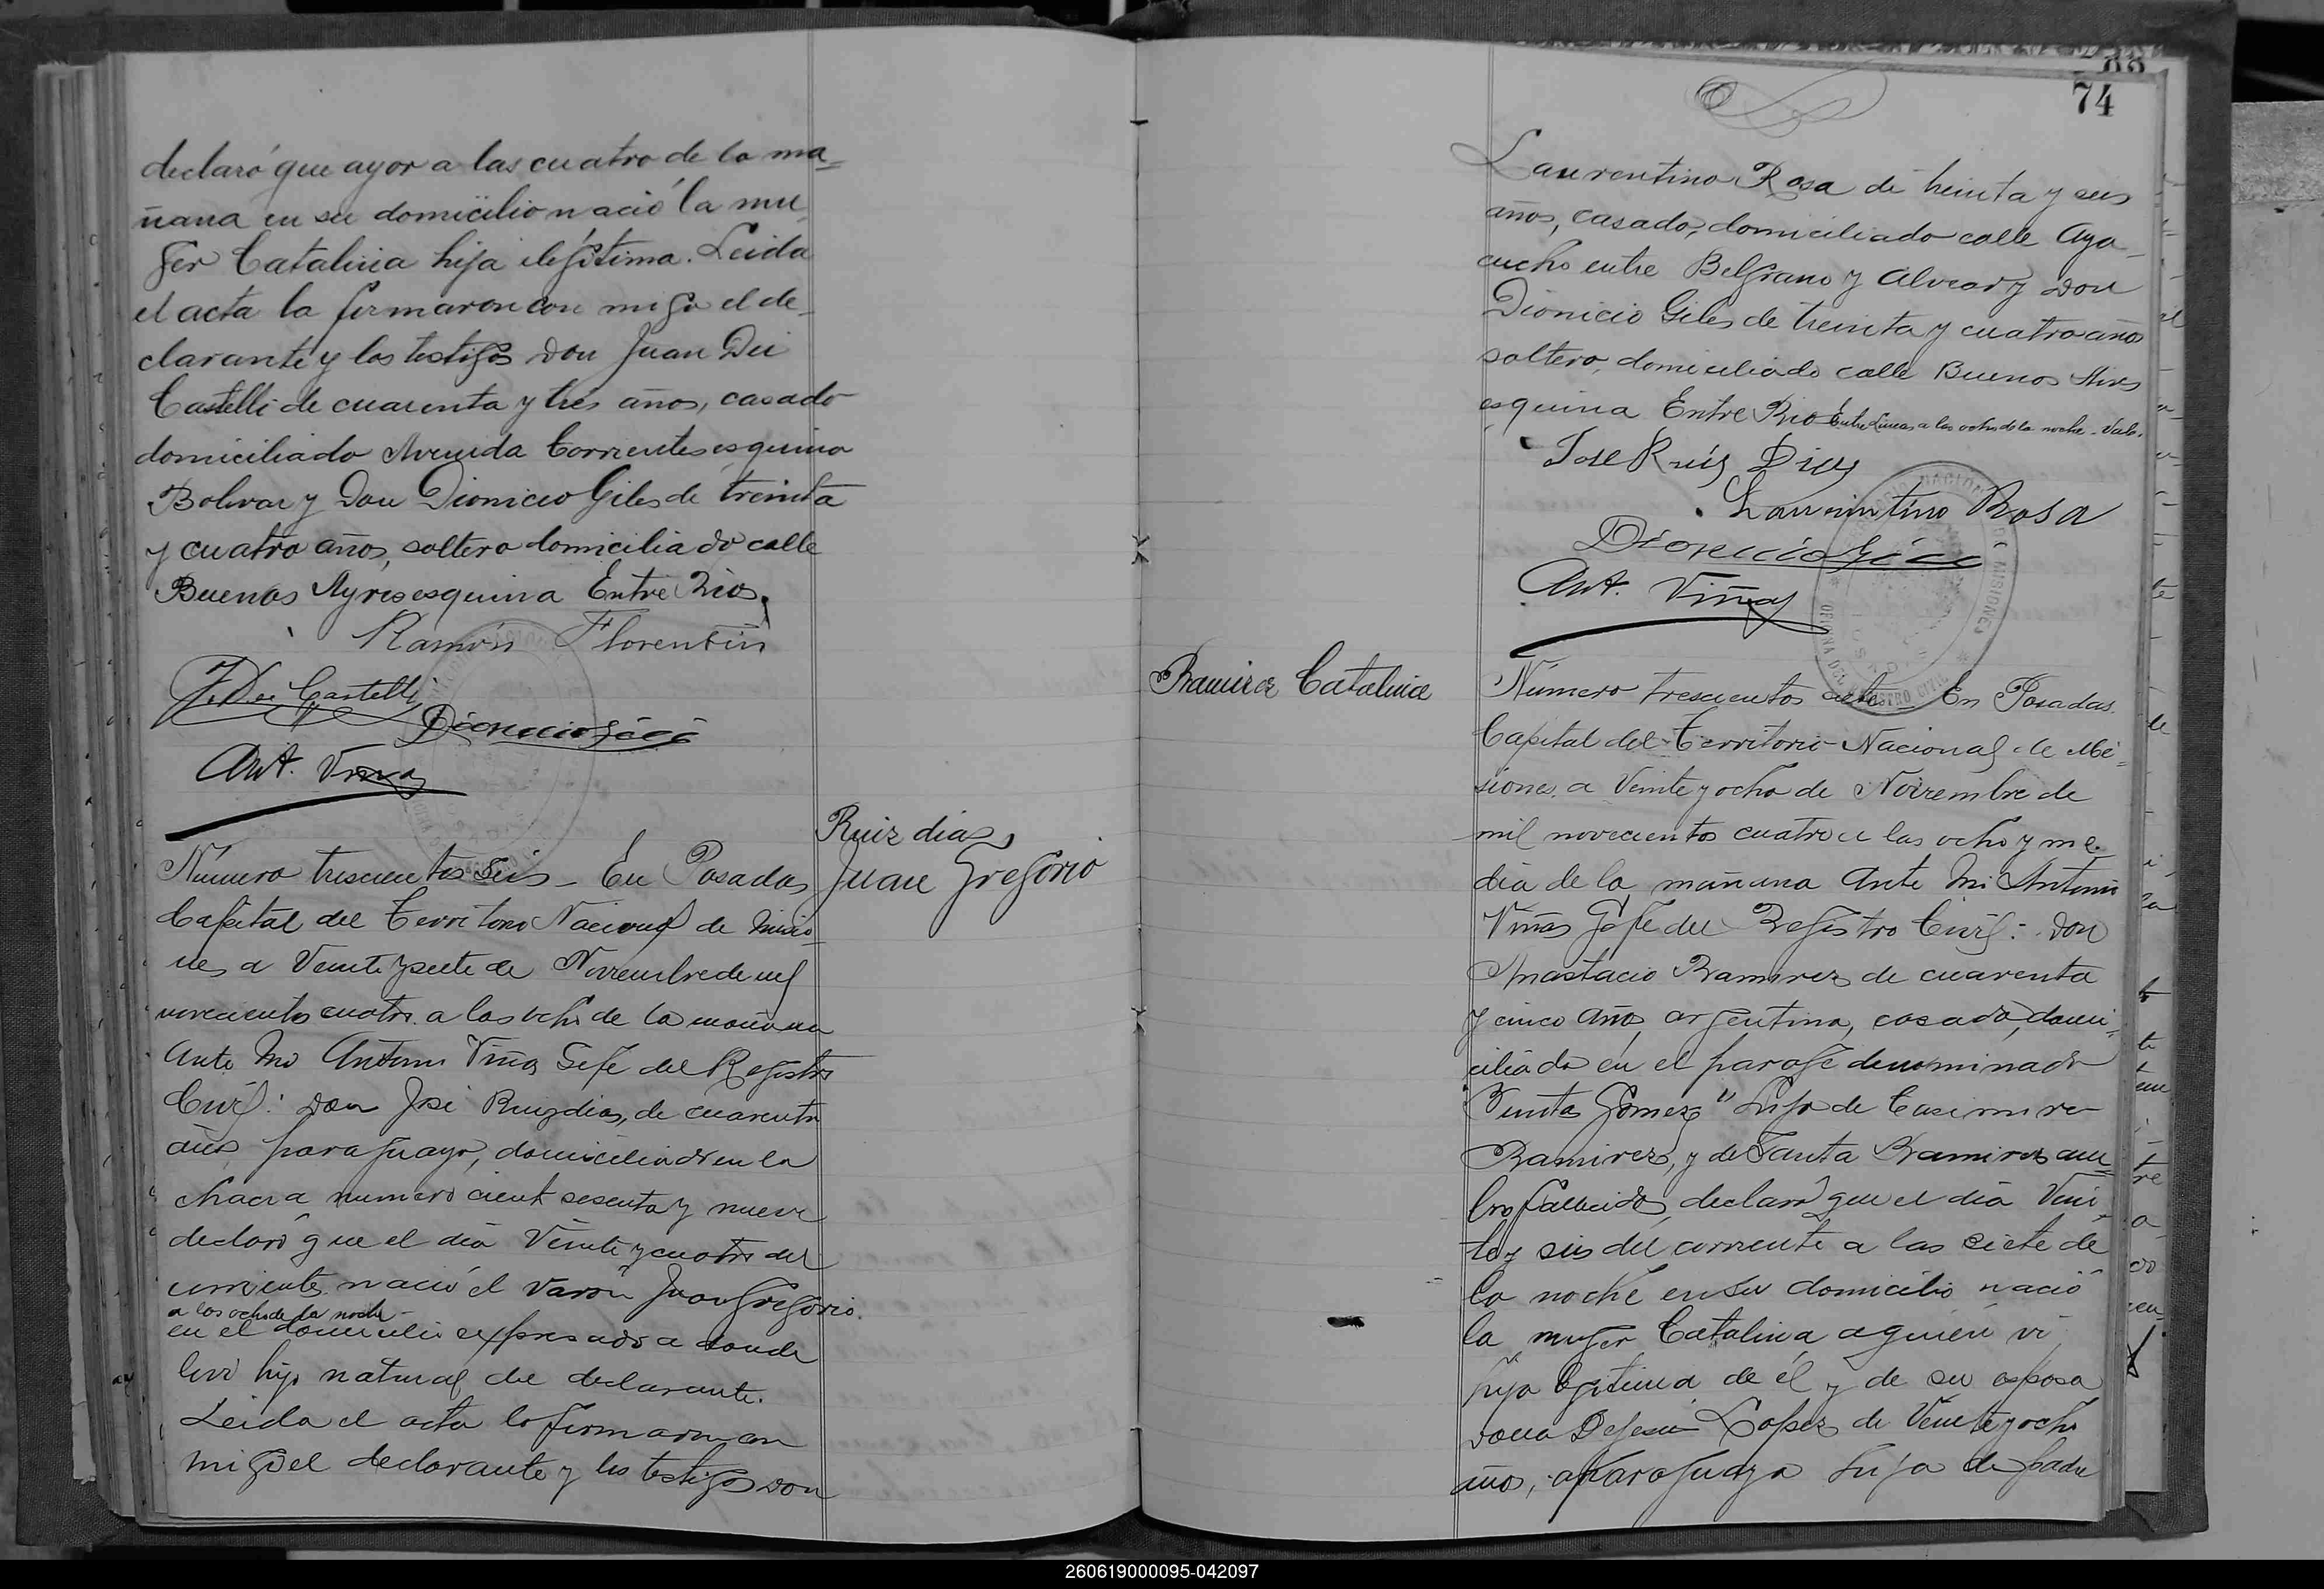 declaró que ayer a las cuatro de la ma=
ñana en su domicilio nació la mu
ger Catalina hija ilegitima. Leida
el acta la firmaron con migo el de-
clarante y los testigos don Juan Dei
Castelli de cuarenta y tres años, casado
domiciliado Avenida Corrientes esquina
Bolivar y Don Dionicio Giles de treinta
y cuatro años, soltero domiciliado calle
Buenos Ayres esquina Entre Rios.
Ramón Florentin
J. Dei Castelli
Dionicio Giles
Ant. Viñas
Ruiz dias
Juan Gregorio
Número trescientos seis - En Posadas
Capital del Territorio Nacional de Misio-
nes a Veinte y siete de Noviembre de mil
novecientos cuatro a las ocho de la mañana
Ante Mi Antonio Viñas Gefe del Registro
Civil: don José Ruizdias, de cuarenta
años paraguayo, domiciliado en la
chacra numero ciento sesenta y nueve
declaró que el dia Veinte y cuatro del
corriente nació el varón Juan Gregorio
a las ocho de la noche -
en el domicilio expresado a donde
lo vi hijo natural del declarante.
Leida el acta la firmaron con
migo el declarante y los testigos don
88
74
Laurentino Rosa de treinta y seis
años, casado, domiciliado calle Aya-
cucho entre Belgrano y Alvear y don
Dionicio Giles de treinta y cuatro años
soltero, domiciliado calle Buenos Aires
esquina Entre Rio Entre Lineas a las ocho de la noche - Vale.
José Ruiz Dias
Laurentino Rosa
Dionicio Giles
Ant. Viñas
Ramirez Catalina
Número trescientos siete - En Posadas
Capital del Territorio Nacional de Mi=
siones a Veinte y ocho de Noviembre de
mil novecientos cuatro a las ocho y me
dia de la mañana Ante Mi Antonio
Viñas Gefe del Registro Civil: don
Anastacio Ramirez de cuarenta
y cinco años, argentino, casado, domi=
ciliado en el parage denominado
"Punta Gomez" hijo de Casimiro
Ramirez, y de Santa Ramirez am
bos fallecidos, declaró que el dia Vein
te y seis del corriente a las siete de
la noche en su domicilio nació
la muger Catalina a quien vi
hija legitima de él y de su esposa
doña Dejesus Lopez de Veinte y ocho
años, paraguaya hija de padre
260619000095-042097